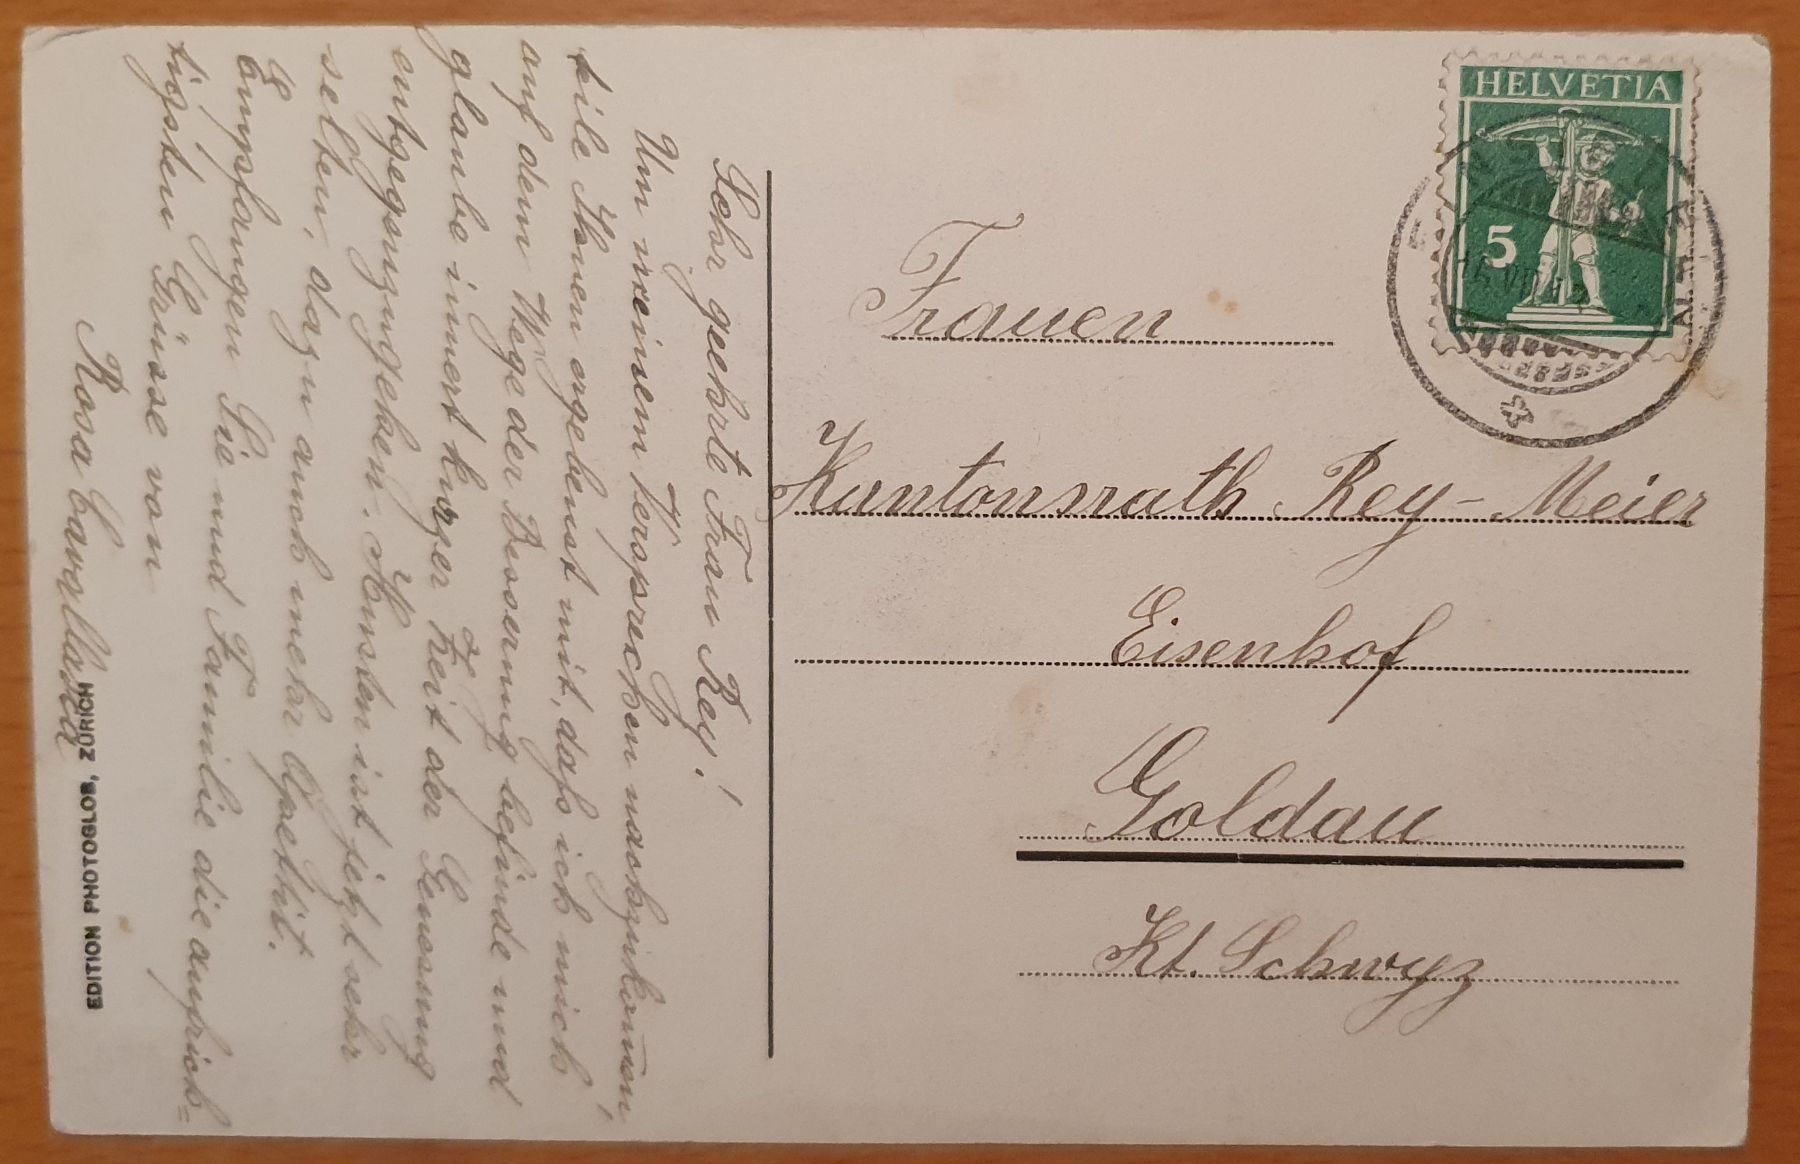 Sehr geehrte Frau Rey!
Um meinem Versprechen nachzukommen
teile Ihnen ergebenst mit, dass ich mich
auf dem Wege der Besserung befinde und
glaube innert kurzer Zeit der Genesung
entgegenzugehen. Husten ist jetzt sehr
selten, dazu auch mehr Apetit.
Empfangen Sie und Familie die aufrich-
tigsten Grüsse von
Rosa
EDITION PHOTOGLOB, ZÜRICH
HELVETIA
5
Frauen
Kantonsrath Rey-Meier
Eisenhof
Goldau
Kt. Schwyz